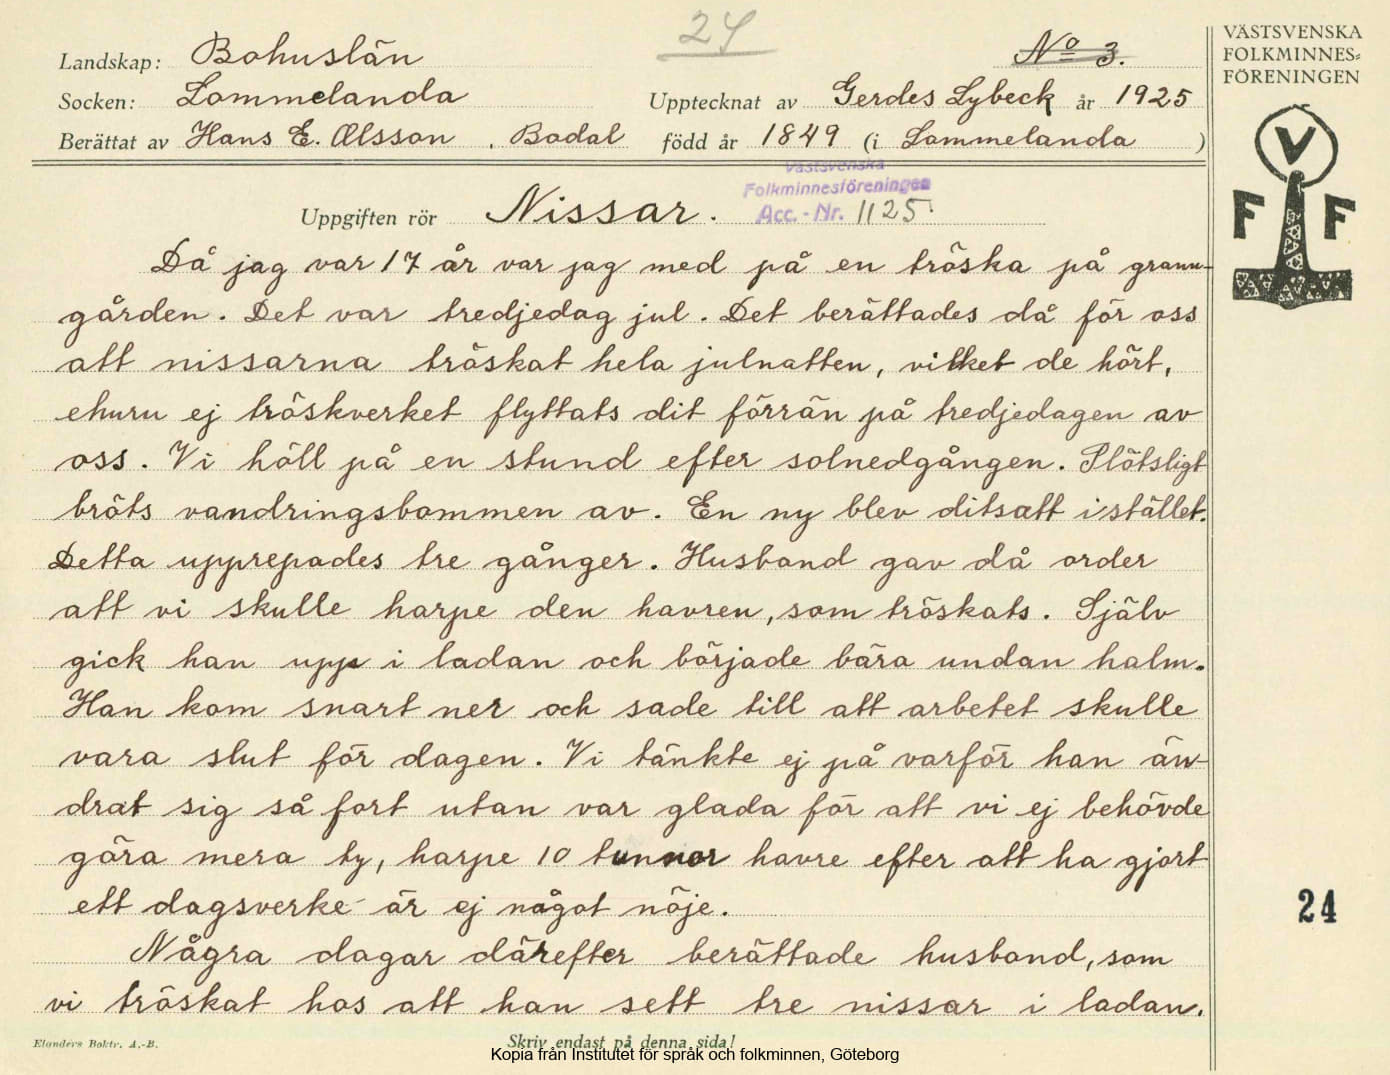 24
Landskap: Bohuslän
No 3.
VÄSTSVENSKA
FOLKMINNES=
FÖRENINGEN
Socken: Lommelanda
Upptecknat av Gerdes Lybeck år 1925
Berättat av Hans E. Olsson, Bodal född år 1849 (i Lommelanda )
V
F F
Västsvenska
Folkminnesföreningen
Acc.-Nr. 1125.
Uppgiften rör Nissar.
Då jag var 17 år var jag med på en tröska på grann-
gården. Det var tredjedag jul. Det berättades då för oss
att nissarna tröskat hela julnatten, vilket de hört,
ehuru ej tröskverket flyttats dit förrän på tredjedagen av
oss. Vi höll på en stund efter solnedgången. Plötsligt
bröts vandringsbommen av. En ny blev ditsatt i stället.
Detta upprepades tre gånger. Husbond gav då order
att vi skulle harpe den havren, som tröskats. Själv
gick han upp i ladan och började bära undan halm.
Han kom snart ner och sade till att arbetet skulle
vara slut för dagen. Vi tänkte ej på varför han än-
drat sig så fort utan var glada för att vi ej behövde
göra mera ty, harpe 10 tunnor havre efter att ha gjort
ett dagsverke är ej något nöje.
Några dagar därefter berättade husbond, som
vi tröskat hos att han sett tre nissar i ladan.
24
Elanders Boktr. A.-B.
Skriv endast på denna sida!
Kopia från Institutet för språk och folkminnen, Göteborg